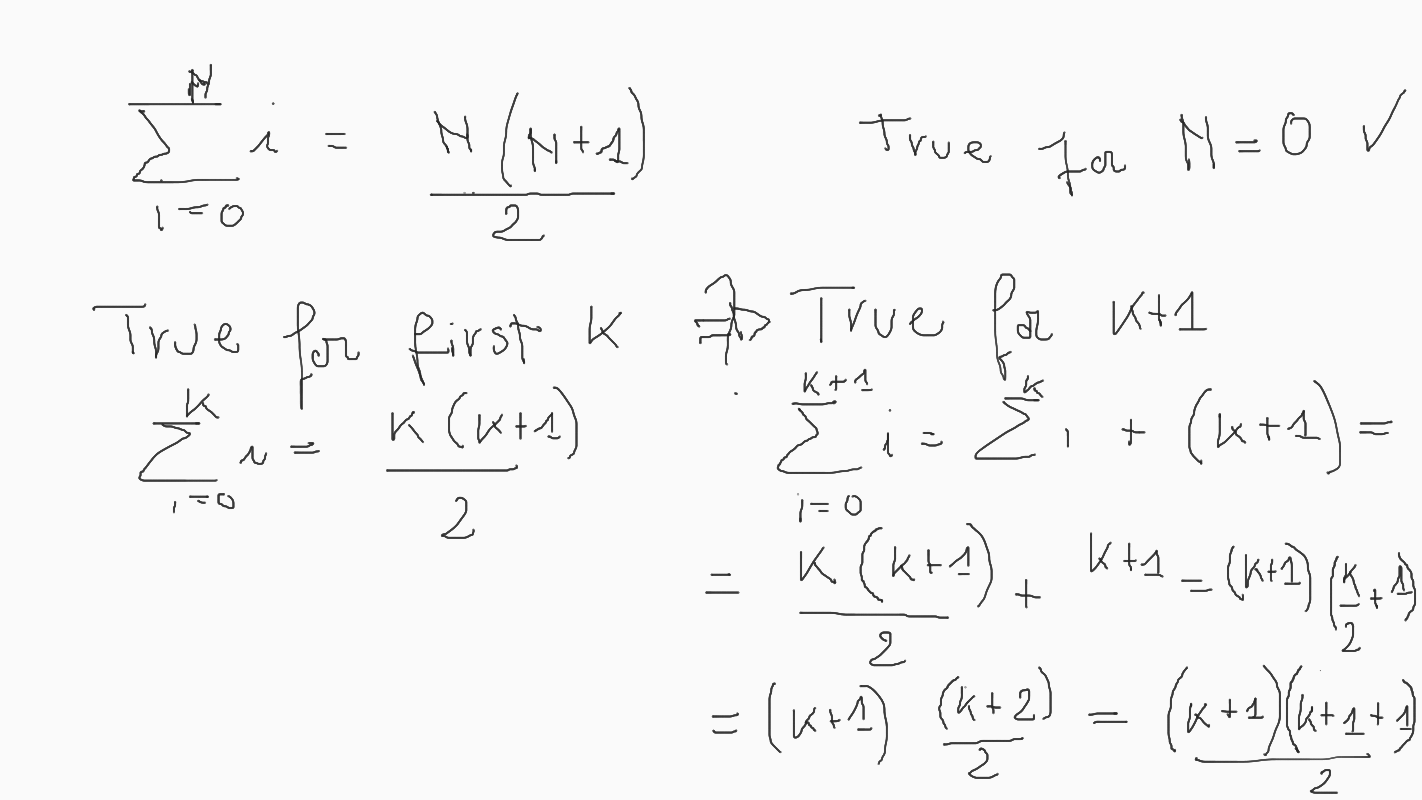 $\sum_{i=0}^{N} i = \frac{N(N+1)}{2}$ True for N = 0 ✓
True for first K $\stackrel{?}{\Rightarrow}$ True for K+1
$\sum_{i=0}^{K} i = \frac{K(K+1)}{2}$ $\sum_{i=0}^{K+1} i = \sum^{K} i + (K+1) =$
$= \frac{K(K+1)}{2} + K+1 = (K+1)\left(\frac{K}{2}+1\right)$
$= (K+1) \frac{(K+2)}{2} = \frac{(K+1)(K+1+1)}{2}$